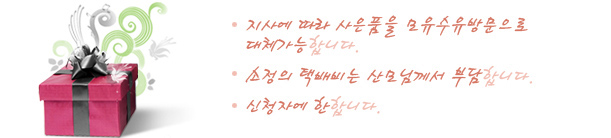 지사에 따라 사은품을 모유수유방문으로
대체가능합니다.
소정의 택배비는 산모님께서 부담합니다.
신청자에 한합니다.